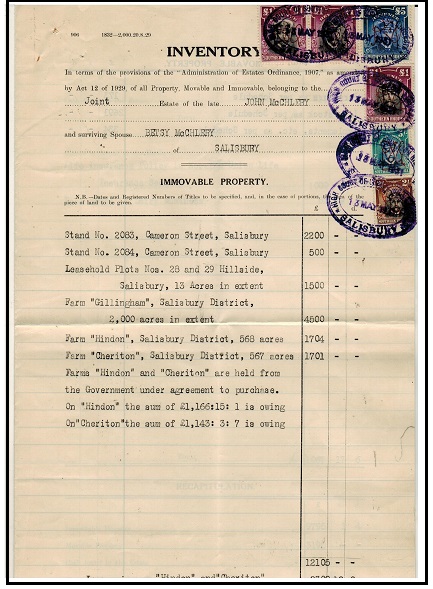 966 1832—2,000.20.8.29
INVENTORY
In terms of the provisions of the "Administration of Estates Ordinance, 1907," as
by Act 12 of 1929, of all Property, Movable and Immovable, belonging to the
Joint Estate of the late JOHN McCHLERY
and surviving Spouse BETSY McCHLERY
of SALISBURY
IMMOVABLE PROPERTY.
N.B.—Dates and Registered Numbers of Titles to be specified, and, in the case of portions, of the
piece of land to be given.
£
Stand No. 2083, Cameron Street, Salisbury 2200 - -
Stand No. 2084, Cameron Street, Salisbury 500 - -
Leasehold Plots Nos. 28 and 29 Hillside,
Salisbury, 13 Acres in extent 1500 - -
Farm "Gillingham", Salisbury District,
2,000 acres in extent 4500 - -
Farm "Hindon", Salisbury District, 568 acres 1704 - -
Farm "Cheriton", Salisbury District, 567 acres 1701 - -
Farms "Hindon" and "Cheriton" are held from
the Government under agreement to purchase.
On "Hindon" the sum of £1,166:15: 1 is owing
On"Cheriton"the sum of £1,143: 3: 7 is owing
12105 - -
"Hindon" and "Cheriton"
£5
SALISBURY
£1
SALISBURY
13 MAY
SALISBURY